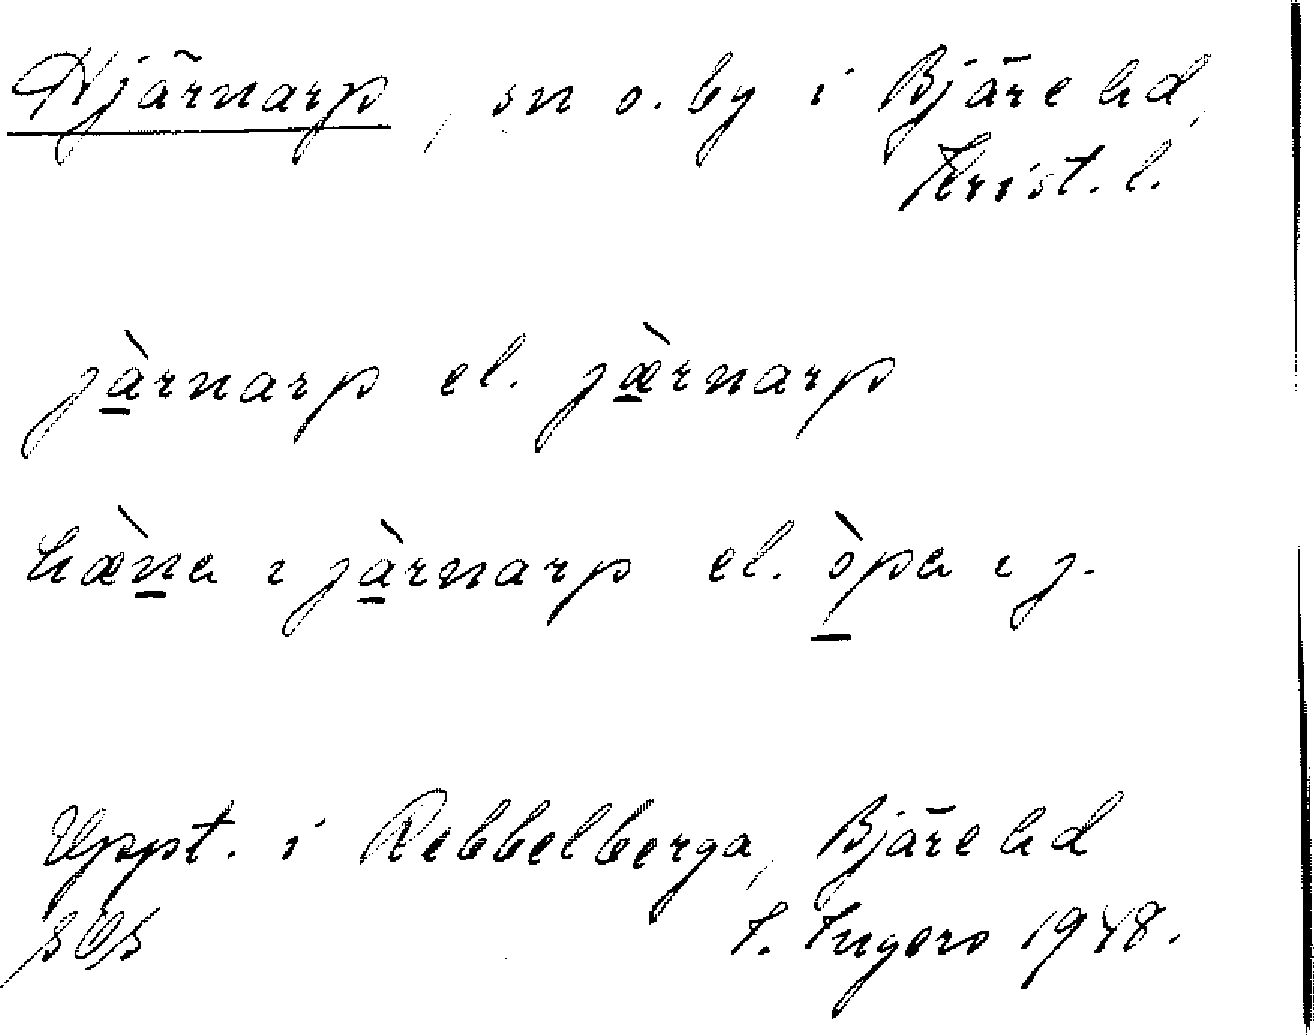 Hjärnarp, sn o. by i Bjäre hd,
Krist. l.
jàrnarp el. jæ̀rnarp
hæ̀na i jàrnarp el. òpa i j.
Uppt. i Rebbelberga, Bjäre hd
I. Ingers 1948.